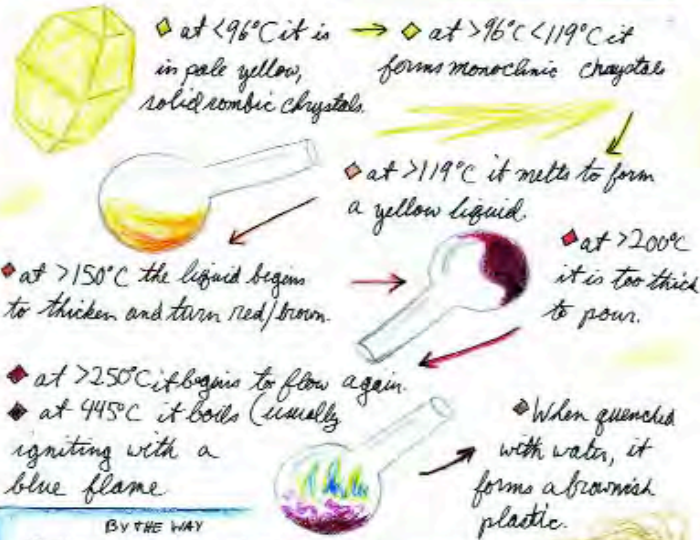 at <96°C it is
in pale yellow,
solid rombic chrystals.
at >96°C <119°C it
forms monoclinic chrystals
at >119°C it melts to form
a yellow liquid.
at >150°C the liquid begins
to thicken and turn red/brown.
at >200°C
it is too thick
to pour.
at >250°C it begins to flow again.
at 445°C it boils (usually
igniting with a
blue flame
When quenched
with water, it
forms a brownish
plastic.
BY THE WAY